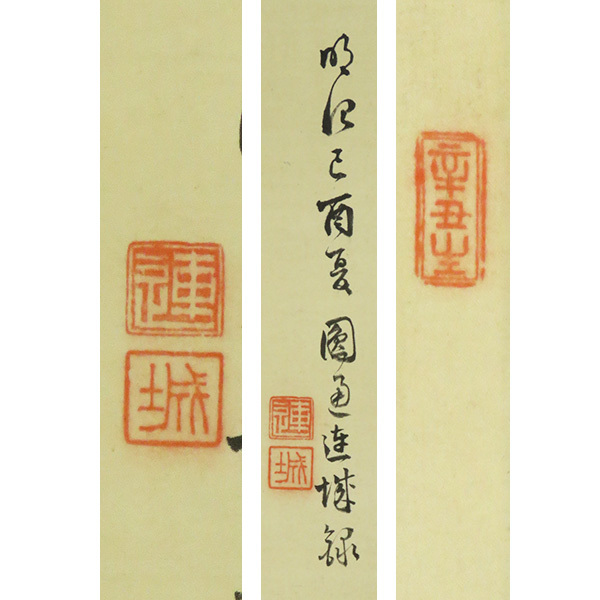 連
城
明治己酉夏圓通連城録
連
城
辛丑生